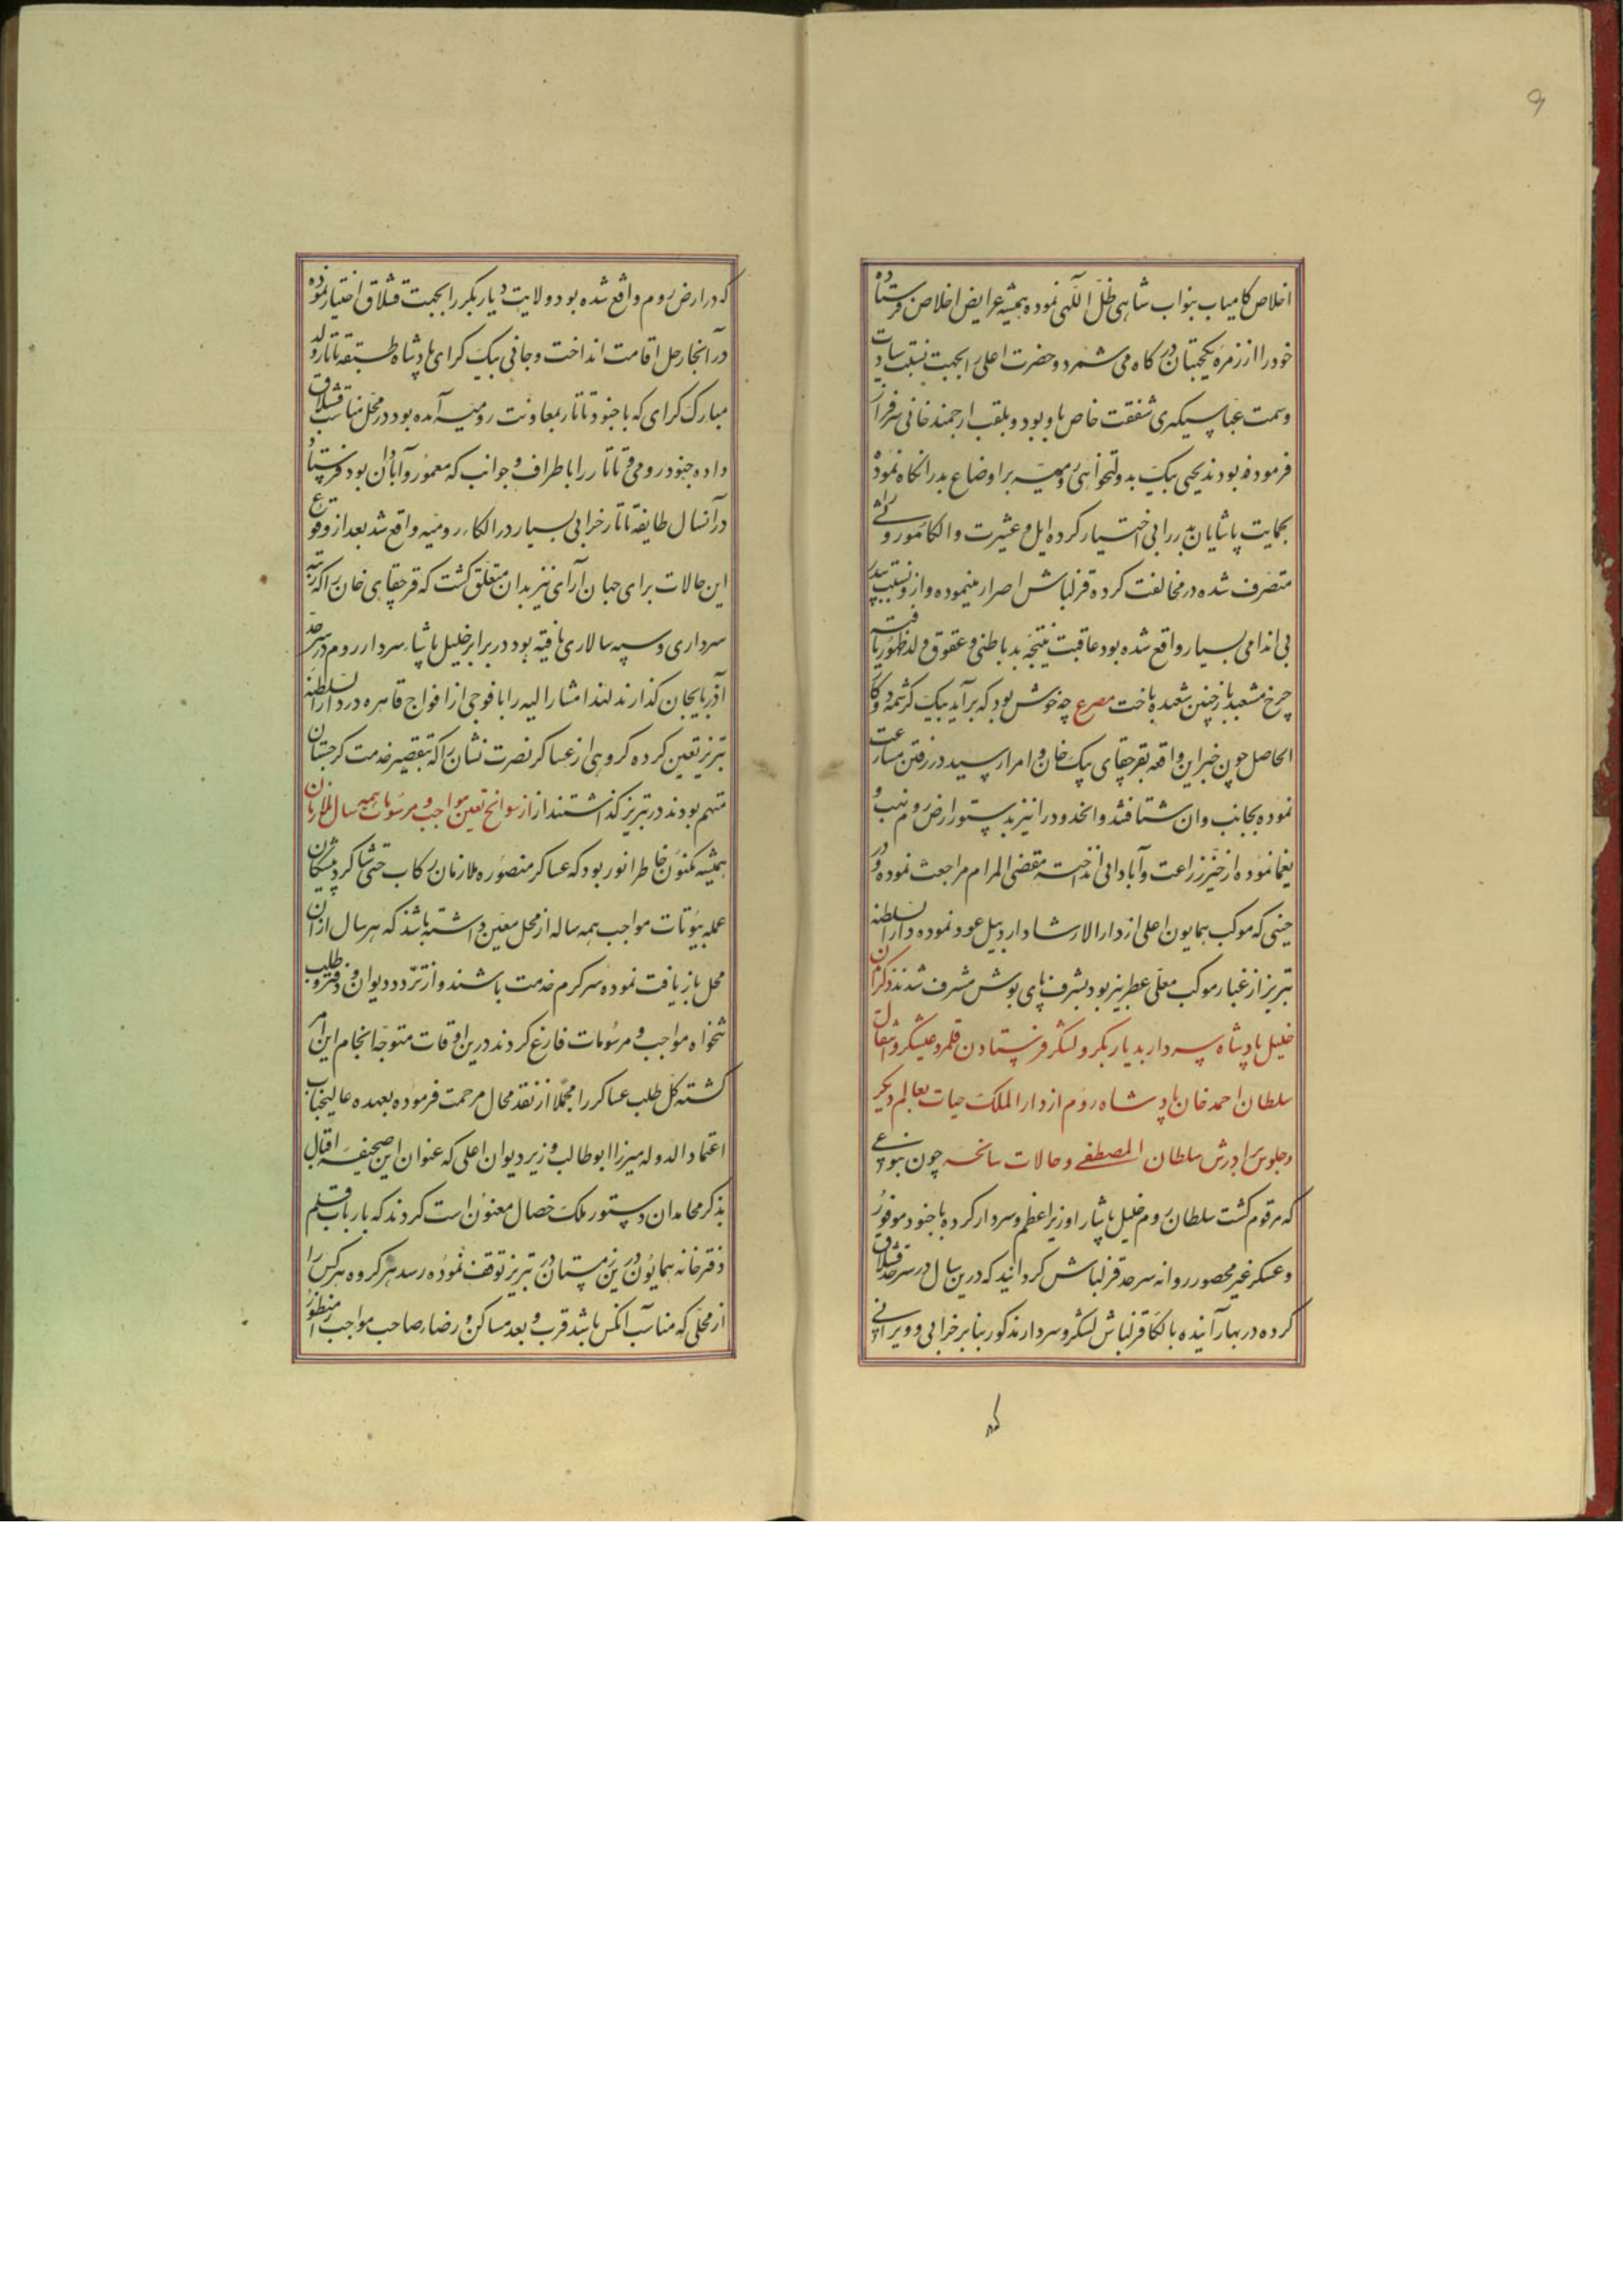 ۹
اخلاص کامیاب بنواب شاهی ظل اللهی نموده همیشه عرایض اخلاص فرستاده
خود را از زمره یکجهتان درکاه می شمرد و حضرت اعلی را بجهت نسبت سیادت
وسمت عباسیکری شفقت خاص باو بود و بلقب ارجمند خانی سرفراز
فرموده بودند یحیی بیک بدولتخواهی رومیه بر اوضاع پدر انکاه نموده
بحمایت پاشایان پدر را بی اختیار کرده ایل و عشیرت و الکا موروثی
متصرف شده در مخالفت کرده قزلباش اصرار مینموده و ازو نسبت بپدر
بی اندامی بسیار واقع شده بود عاقبت نتیجه بد باطنی و عقوق ولد ظهور یافت
چرخ مشعبد باز چنین شعبده باخت مصرع چه خوش بود که برآید بیک کرشمه دو کار
الحاصل چون خبر این واقعه بقرچقای بیک خان و امرا رسید در رفتن مسارعت
نموده بجانب وان شتافتند و انحدود را نیز بدستور ارض روم نهب و
یغما نموده از خیر زراعت و آبادانی انداخته مقضی المرام مراجعت نموده در
حینی که موکب همایون اعلی از دار الارشاد اردبیل عود نموده دار السلطنه
تبریز از غبار موکب معلی عطربیز بود بشرف پای بوش مشرف شدند ذکر آمدن
خلیل پادشاه سردار بدیار بکر و لشکر فرستادن قلمرو علیشکر و انتقال
سلطان احمد خان پادشاه روم از دار الملک حیات بعالم دیکر
و جلوس برادرش سلطان المصطفی و حالات سانحه چون بنوعی
که مرقوم کشت سلطان روم خلیل پاشا را وزیر اعظم و سردار کرده با جنود موفور
و عسکر غیر محصور روانه سرحد قزلباش کردانید که درین سال در سرحد قشلاق
کرده در بهار آینده بالکا قزلباش لشکر و سردار مذکور بنابر خرابی و ویرانی
که
که در ارض روم واقع شده بود ولایت دیار بکر را بجهت قشلاق اختیار نموده
در آنجا رحل اقامت انداخت و جانی بیک کرای پادشاه طبقه تاتار ولد
مبارک کرای که با جنود تاتار بمعاونت رومیه آمده بود در محل مناسب قشلاق
داده جنود رومی و تاتار را باطراف و جوانب که معمور و آبادان بود فرستاد
در آنسال طایفه تاتار خرابی بسیار در الکاء رومیه واقع شد بعد از وقوع
این حالات برای جهان آرای نیز بدان متعلق کشت که قرچقای خان را که رتبه
سرداری و سپه سالاری یافته بود در برابر خلیل پاشاء سردار روم در سرحد
آذربایجان کذارند لهذا مشار الیه را با فوجی از افواج قاهره در دار السلطنه
تبریز تعین کرده کروهی از عساکر نصرت نشان را که بتقصیر خدمت کرجستان
متهم بودند در تبریز کذاشتند از از سوانح تعین مواجب و مرسومات همه سال ملازمان
همیشه مکنون خاطر انور بود که عساکر منصوره ملازمان رکاب حتی شاکرد پیشکان
عمله بیوتات مواجب همه ساله از محل معین داشته باشند که هر سال از آن
محل بازیافت نموده سرکرم خدمت باشند و از تردد دیوان و دفتر و طلب
تنخواه مواجب و مرسومات فارغ کردند درین اوقات متوجه انجام این امر
کشته کل طلب عساکر را مجملا از نقد محال مرحمت فرموده بعهده عالیجناب
اعتماد الدوله میرزا ابوطالب وزیر دیوان اعلی که عنوان این صحیفه اقبال
بذکر محامد ان دستور ملک خصال معنون است کردند که بارباب قلم
دفترخانه همایون درین زمستان در تبریز توقف نموده رسد هر کروه هر کس را
از محلی که مناسب آنکس باشد قرب و بعد مساکن و رضاء صاحب مواجب را منظور